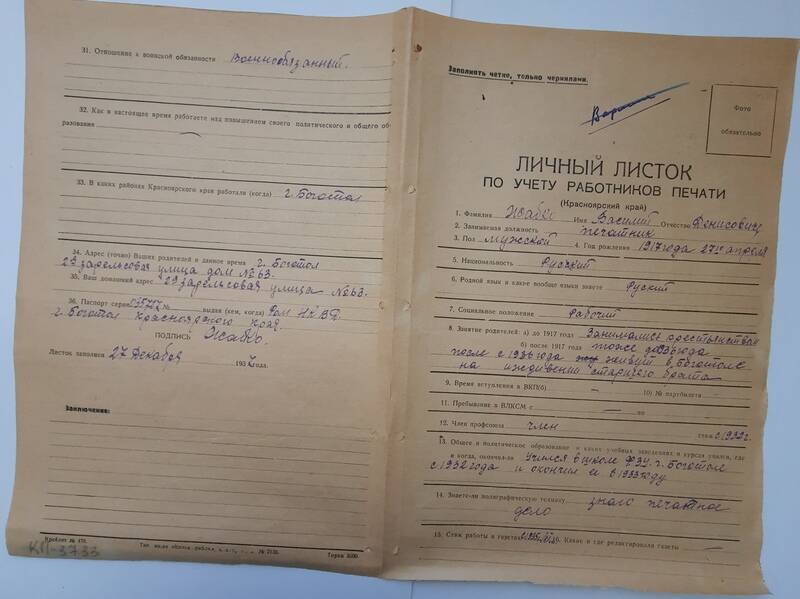 31. Отношение к воинской обязанности Военнообязанный.
32. Как в настоящее время работаете над повышением своего политического и общего об-
разования —
33. В каких районах Красноярского края работали (когда) г. Боготол
34. Адрес (точно) Ваших родителей в данное время г. Боготол
2я зарельсовая улица дом № 63.
35. Ваш домашний адрес 2я зарельсовая улица № 63.
36. Паспорт серия № выдан (кем, когда) Ром НКВД
г. Боготол Красноярского Края.
ПОДПИСЬ
Листок заполнен 27 Декабря 193 года.
Заключение:
Крайлит № 470. № 2136. Тираж 3000
КП-3733
Заполнять четко, только чернилами.
Фото
обязательно
ЛИЧНЫЙ ЛИСТОК
ПО УЧЕТУ РАБОТНИКОВ ПЕЧАТИ
(Красноярский край)
1. Фамилия Имя Василий Отчество Денисович
2. Занимаемая должность печатник
3. Пол мужской 4. Год рождения 1917 года 27го апреля
5. Национальность Русский
6. Родной язык и какие вообще языки знаете Руский
7. Социальное положение рабочий
8. Занятие родителей: а) до 1917 года Занимались крестьянством
б) после 1917 года тоже до 36 года
после с 1936 года живут в Боготоле
на иждивении старшего брата
9. Время вступления в ВКП(б) — 10) № партбилета —
11. Пребывание в ВЛКСМ с — по
12. Член профсоюза член стаж с 1932 г.
13. Общее и политическое образование и каких учебных заведениях и курсах учились, где
и когда, окончили Учился в школе ФЗУ. г. Боготоле
с 1932 года и окончил ее в 1933 году
14. Знаете-ли полиграфическую технику знаю печатное
дело
15. Стаж работы в газетах 16. Какие и где редактировали газеты —